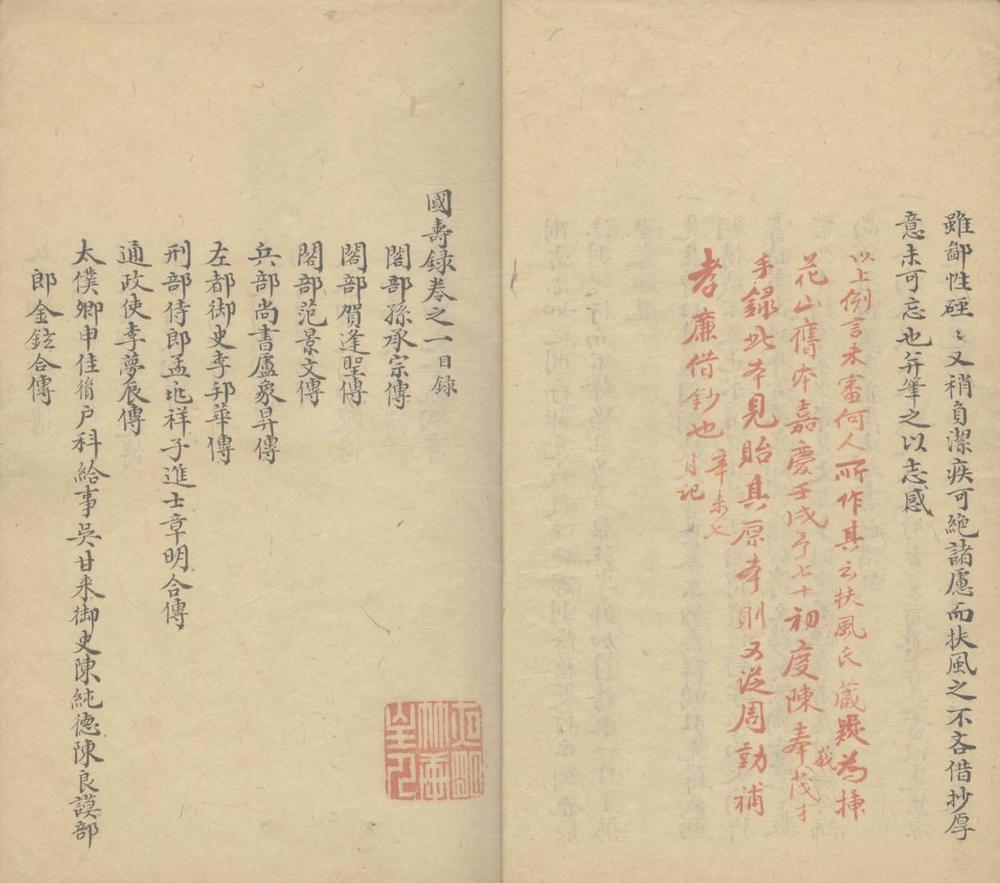 雖鄙性硜〻又稍負潔疾可絶諸慮而扶風之不吝借抄厚
意未可忘也并筆之以志感
以上例言未審何人所作其云扶風氏蔵疑為挿
花山舊本嘉慶壬戌予七十初度陳奉莪茂才
手録此本見貽其原本則又從周勤補
孝廉借鈔也辛未七
月記
國壽録卷之一目録
閣部孫承宗傳
閣部賀逢聖傳
閣部范景文傳
兵部尚書盧象昇傳
左都御史李邦華傳
刑部侍郎孟兆祥子進士章明合傳
通政使李夢辰傳
太僕卿申佳胤户科給事吳甘来御史陳純德陳良謨部
郎金鉉合傳